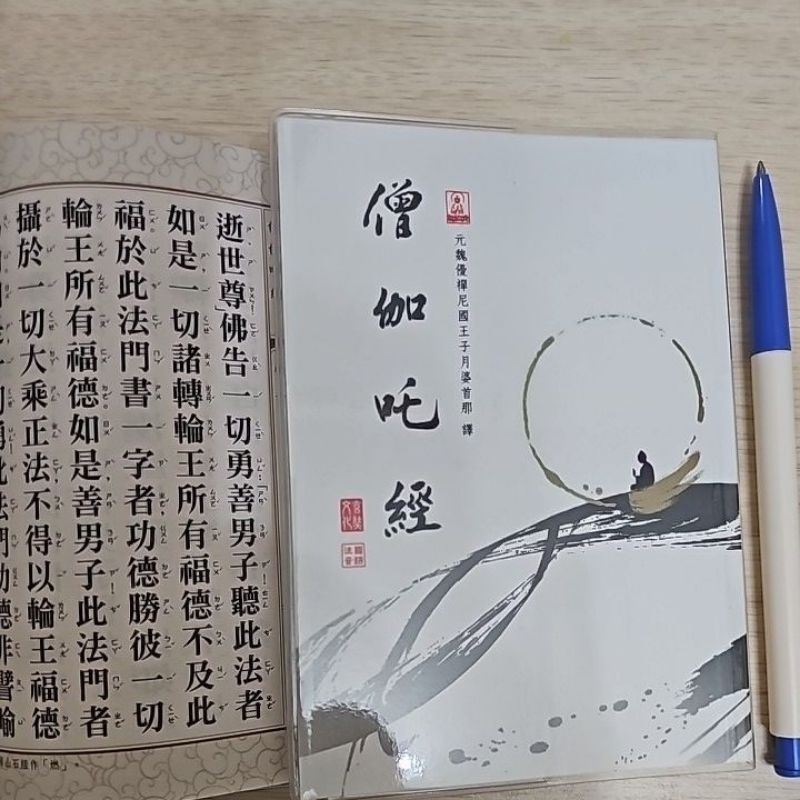 僧伽吒經
元魏優禪尼國王子月婆首那 譯
文化
國語
注音
逝世尊」佛告一切勇「善男子聽此法者
如是一切諸轉輪王所有福德不及此
福於此法門書一字者功德勝彼一切
輪王所有福德如是善男子此法門者
攝於一切大乘正法不得以輪王福德
此法門功德非譬喻
山石經作「燃」。